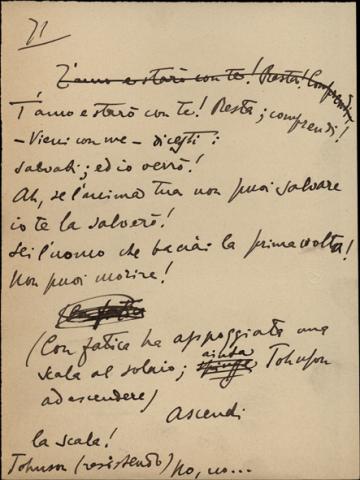 71
T'amo e starò con te! Resta! Comprendi
T'amo e starò con te! Resta; comprendi!
– Vieni con me – dicesti:
salvati; ed io verrò!
Ah, se l'anima tua non puoi salvare
io te la salverò!
Sei l'uomo che baciai la prima volta!
Non puoi morire!
(Con fatica ha appoggiata una
scala al solaio; aiuta Johnson
ad ascendere)
Ascendi
la scala!
Johnson (resistendo) No, no...